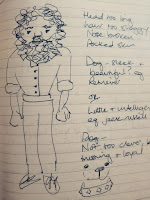 Head too big
hair too shaggy
Nose broken
Pocked skin
Dog - sleek &
beautiful? eg
Retriever
or
Little & intelligent
eg jack russell
Dog -
Not too clever,
trusting & loyal